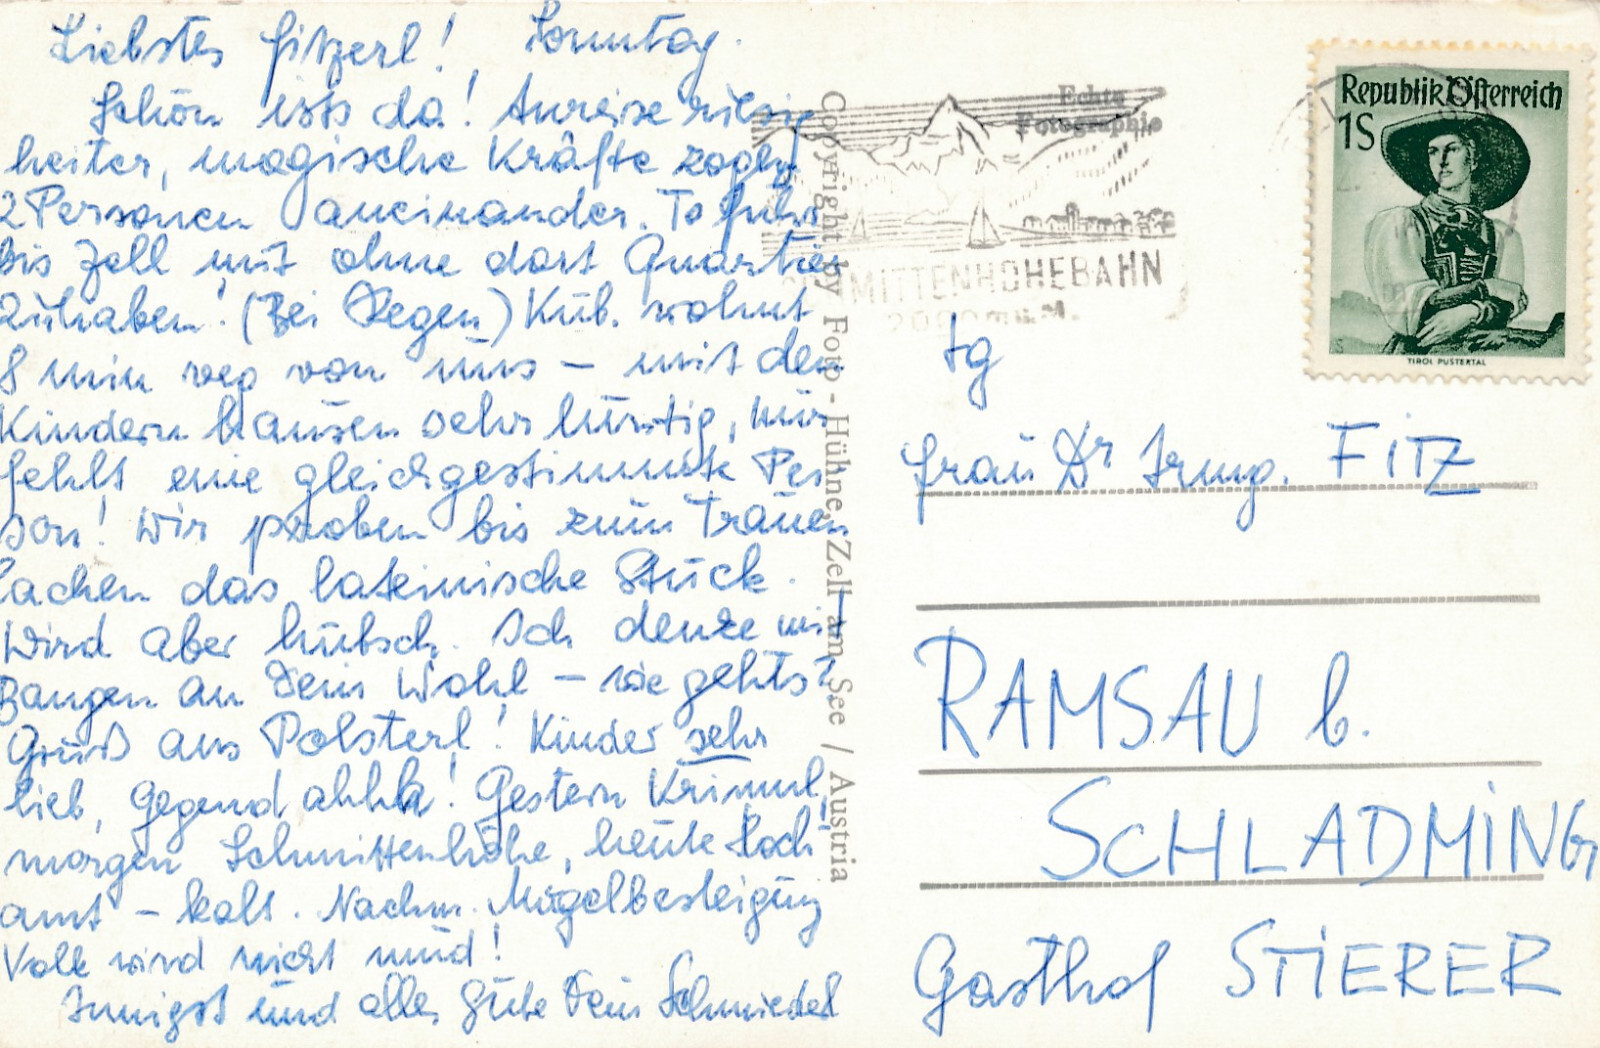 Liebstes Fitzerl! Sonntag.
Schön ists da! Anreise riesig
heiter, magische Kräfte zogen
2 Personen aneinander. To fuhr
bis Zell mit ohne dort Quartier
zuhaben! (Bei Regen) Küb. wohnt
8 min weg von uns – mit den
Kindern hausen sehr lustig, nur
fehlt eine gleichgestimmte Per
son! Wir proben bis zum Tränen
lachen das lateinische Stück.
Wird aber hübsch. Ich denke mit
Bangen an Dein Wohl – wie gehts?
Gruß ans Polsterl! Kinder sehr
lieb, Gegend ahhh! Gestern Krimml,
morgen Schmittenhöhe, heute Hoch
amt – kalt. Nachm. Mugelbesteigung
Volk wird nicht müd!
Innigst und alles Gute Dein Schmiedel
Copyright by Foto - Hühne, Zell am See / Austria
Echte
Fotographie
SCHMITTENHÖHEBAHN
2000 m ü. M.
Republik Österreich
1S
TIROL PUSTERTAL
tg
Frau Dr Irmg. FITZ
RAMSAU b.
SCHLADMING
Gasthof STIERER